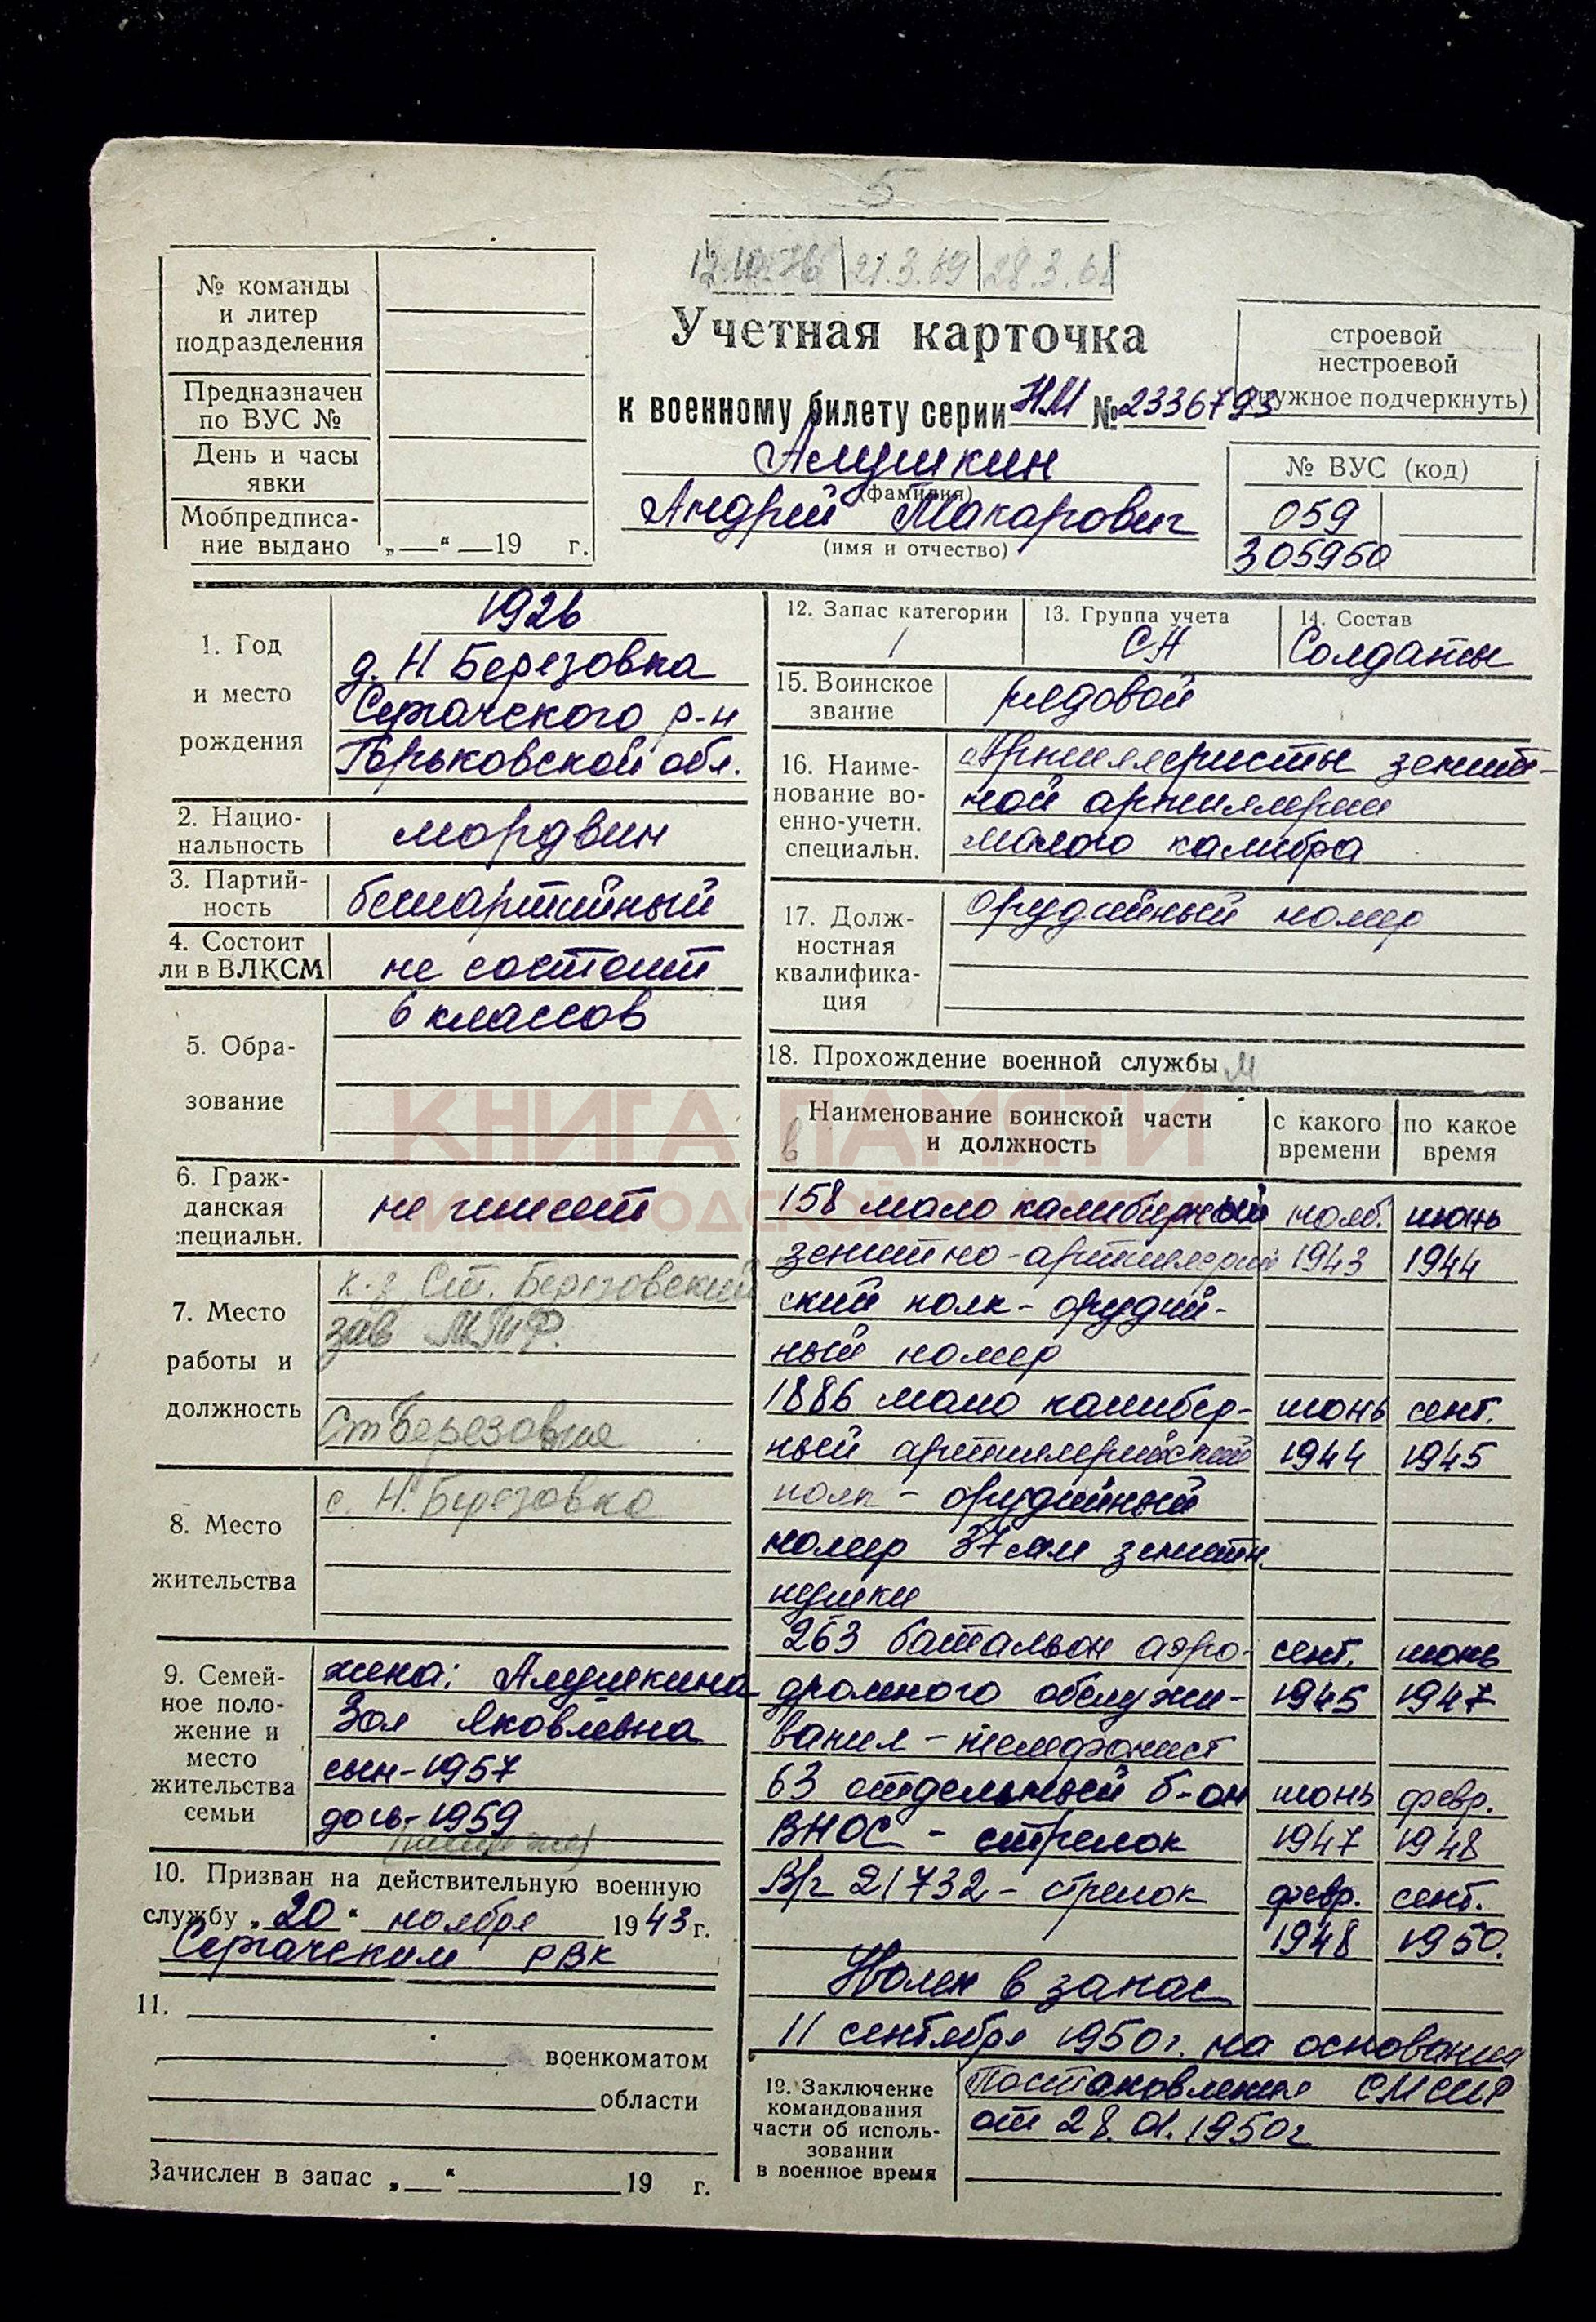 5
12.10.76 | 21.3.69 | 28.3.68
№ команды
и литер
подразделения
Предназначен
по ВУС №
День и часы
явки
Мобпредписа-
ние выдано „—“ —19 г.
Учетная карточка
к военному билету серии НМ № 2336793
Алушкин
(фамилия)
Андрей Макарович
(имя и отчество)
строевой
нестроевой
(нужное подчеркнуть)
№ ВУС (код)
059
305950
1. Год
и место
рождения
1926
д. Н Березовка
Сергачского р-н
Горьковской обл.
2. Нацио-
нальность
мордвин
3. Партий-
ность
беспартийный
4. Состоит
ли в ВЛКСМ
не состоит
5. Обра-
зование
6 классов
6. Граж-
данская
специальн.
не имеет
7. Место
работы и
должность
к-з Ст. Березовский
зав МТФ.
Ст Березовка
8. Место
жительства
с. Н. Березовка
9. Семей-
ное поло-
жение и
место
жительства
семьи
жена: Алушкина
Зоя Яковлевна
сын-1957
дочь-1959
10. Призван на действительную военную
службу „20“ ноября 1943 г.
Сергачским РВК
11.
военкоматом
области
Зачислен в запас „—“ 19 г.
12. Запас категории
1
13. Группа учета
СА
14. Состав
Солдаты
15. Воинское
звание
рядовой
16. Наиме-
нование во-
енно-учетн.
специальн.
Артиллеристы зенит-
ной артиллерии
малого калибра
17. Долж-
ностная
квалифика-
ция
орудийный номер
18. Прохождение военной службы
Наименование воинской части
и должность
с какого
времени
по какое
время
158 мало калиберный нояб. июнь
зенитно-артиллерий 1943 1944
ский полк - орудий-
ный номер
1886 мало калибер- июнь сент.
ный артиллерийский 1944 1945
полк - орудийный
номер 37 мм зенитн.
пушки
263 батальон аэро- сент. июнь
дромного обслужи- 1945 1947
вания - телефонист
63 отдельный б-он июнь февр.
ВНОС - стрелок 1947 1948
В/ч 21732 - стрелок февр. сент.
1948 1950.
Уволен в запас
11 сентября 1950г. на основании
19. Заключение
командования
части об исполь-
зовании
в военное время
Постановления СМ СССР
от 28.01.1950г
КНИГА ПАМЯТИ